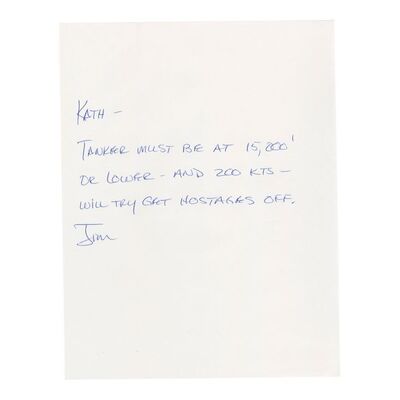 KATH –
TANKER MUST BE AT 15,200'
OR LOWER – AND 200 KTS –
WILL TRY GET HOSTAGES OFF.
Jim